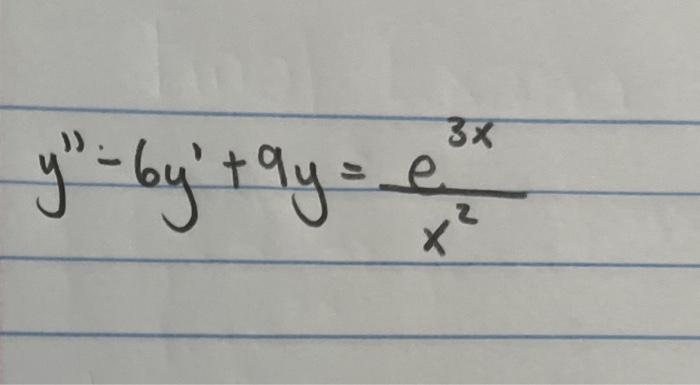 y'' - 6y' + 9y = e^{3x}/x^2